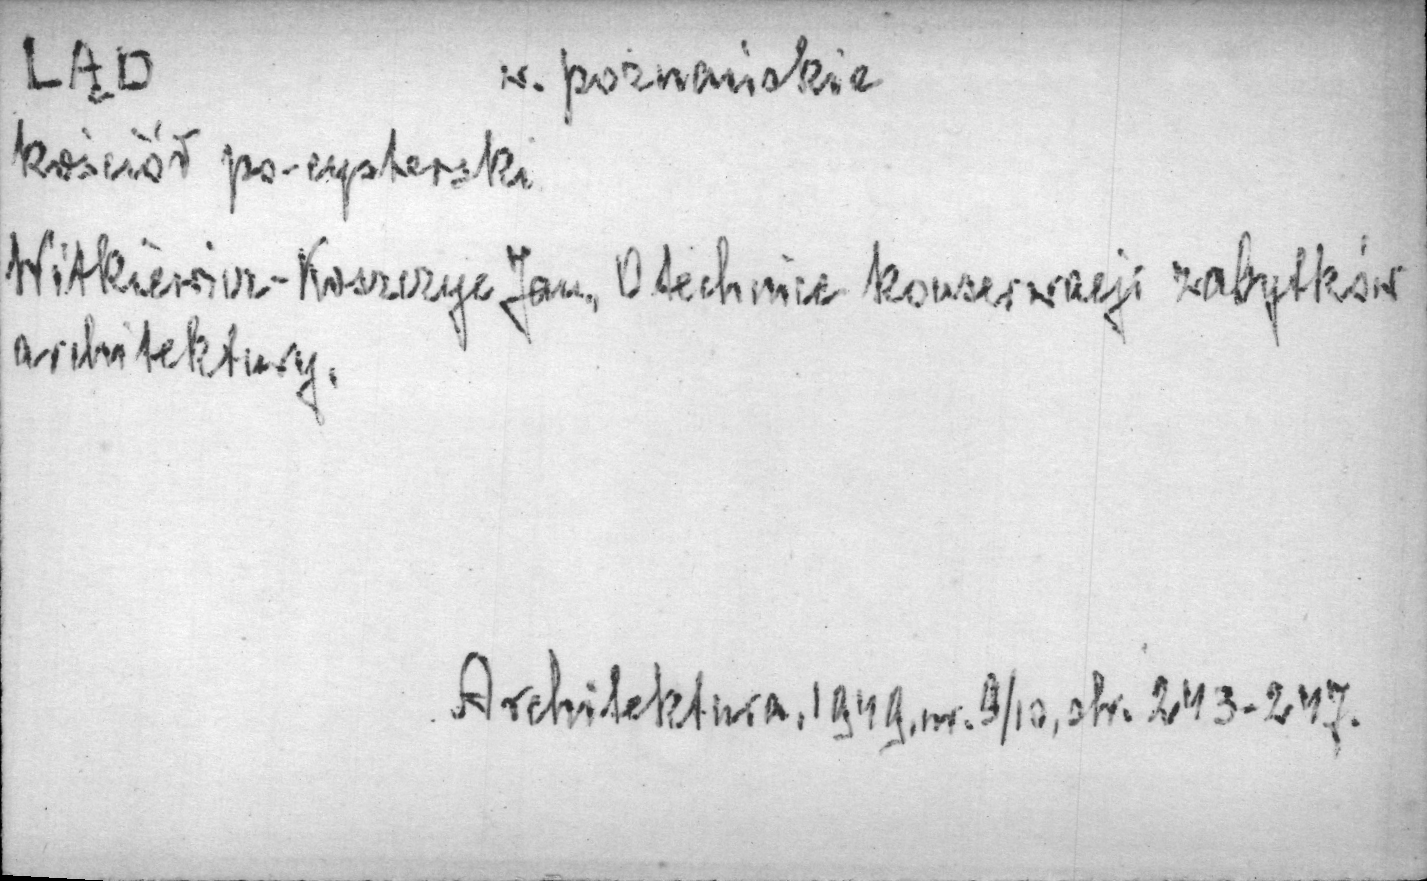 LĄD w. poznańskie
kościół po-cysterski
Witkiewicz-Koszczyc Jan, O technice konserwacji zabytków
architektury.
Architektura, 1949, nr. 9/10, str. 243-247.